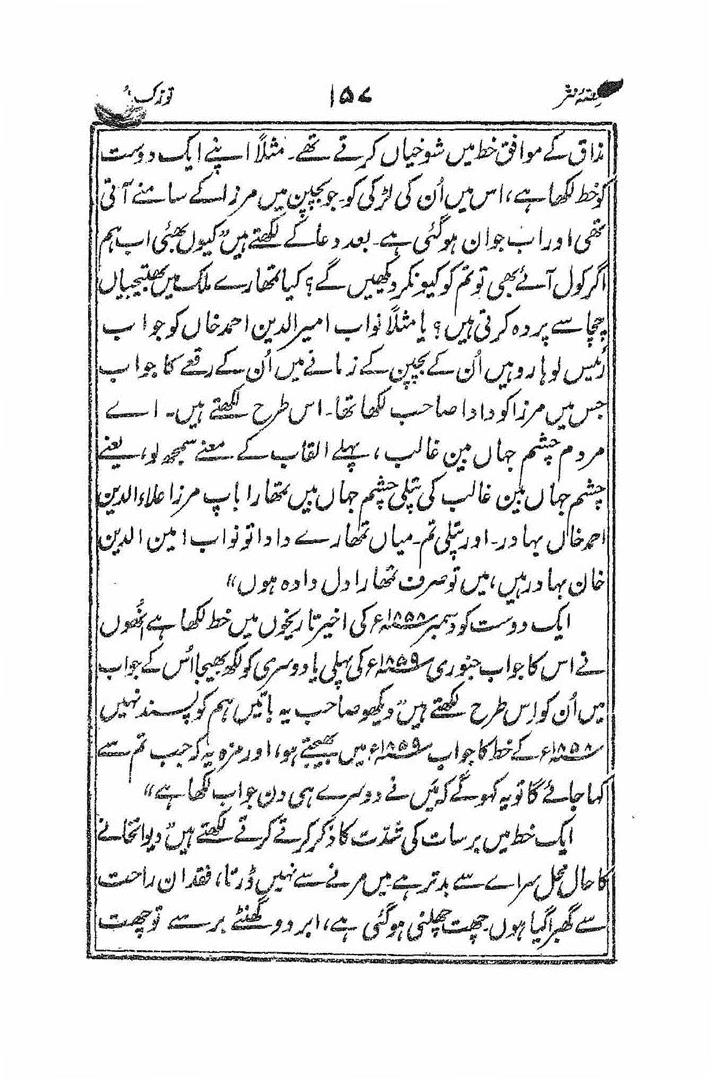 حصہ نثر ۱۵۷ توزک
مذاق کے موافق خط میں شوخیاں کرتے تھے۔ مثلاً اپنے ایک دوست
کو خط لکھا ہے، اس میں اُن کی لڑکی کو۔ جو بچپن میں مرزا کے سامنے آتی
تھی اور اب جوان ہوگئی ہے۔ بعد دعا کے لکھتے ہیں "کیوں بھئی اب ہم
اگر کول آئے بھی تو تم کو کیونکر دیکھیں گے؟ کیا تمھارے ملک میں بھتیجیاں
چچا سے پردہ کرتی ہیں؟ یا مثلاً نواب امیر الدین احمد خاں کو جو اب
رئیس لوہارو ہیں اُن کے بچپن کے زمانے میں اُن کے رقعے کا جواب
جس میں مرزا کو دادا صاحب لکھا تھا۔ اس طرح لکھتے ہیں۔ اے
مردم چشم جہاں بین غالب، پہلے القاب کے معنے سمجھ لو، یعنے
چشم جہاں بین غالب کی پتلی چشم جہاں بیں تمھارا باپ مرزا علاء الدین
احمد خاں بہادر۔ اور پتلی تم۔ میاں تمھارے دادا تو نواب امین الدین
خان بہادر ہیں، میں تو صرف تمھارا دل دادہ ہوں"
ایک دوست کو دسمبر ۱۸۵۸ء کی اخیر تاریخوں میں خط لکھا ہے اُنھوں
نے اس کا جواب جنوری ۱۸۵۹ء کی پہلی یا دوسری کو لکھ بھیجا اُس کے جواب
میں اُن کو اِس طرح لکھتے ہیں "دیکھو صاحب یہ باتیں ہم کو پسند نہیں
۱۸۵۸ء کے خط کا جواب ۱۸۵۹ء میں بھیجتے ہو، اور مزہ یہ کہ جب تم سے
کہا جائے گا تو یہ کہو گے کہ میں نے دوسرے ہی دن جواب لکھا ہے"
ایک خط میں برسات کی شدّت کا ذکر کرتے کرتے لکھتے ہیں "دیوانخانے
کا حال محل سراے سے بدتر ہے میں مرنے سے نہیں ڈرتا، فقدان راحت
سے گھبرا گیا ہوں۔ چھت چھلنی ہوگئی ہے، ابر دو گھنٹے برسے تو چھت